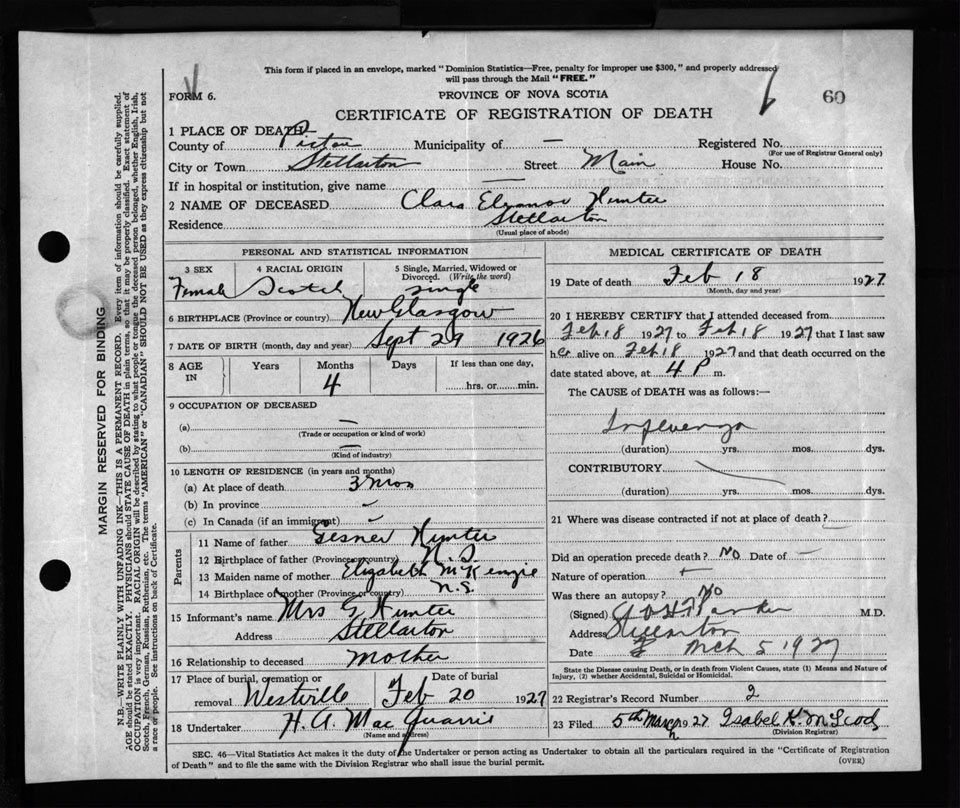 This form if placed in an envelope, marked "Dominion Statistics—Free, penalty for improper use $300," and properly addressed
will pass through the Mail "FREE."
FORM 6.
PROVINCE OF NOVA SCOTIA
60
CERTIFICATE OF REGISTRATION OF DEATH
1 PLACE OF DEATH—
County of Pictou Municipality of — Registered No.
(For use of Registrar General only)
City or Town Stellarton Street Main House No.
If in hospital or institution, give name —
2 NAME OF DECEASED Clara Eleanor Hunter
Residence Stellarton
(Usual place of abode)
PERSONAL AND STATISTICAL INFORMATION
3 SEX 4 RACIAL ORIGIN 5 Single, Married, Widowed or
Divorced. (Write the word)
Female Scotch single
6 BIRTHPLACE (Province or country) New Glasgow
7 DATE OF BIRTH (month, day and year) Sept 29 1926
8 AGE IN Years Months Days If less than one day,
4 hrs. or min.
9 OCCUPATION OF DECEASED
(a) —
(Trade or occupation or kind of work)
(b) —
(Kind of industry)
10 LENGTH OF RESIDENCE (in years and months)
(a) At place of death 3 mos
(b) In province ✓
(c) In Canada (if an immigrant) ✓
Parents
11 Name of father Gesner Hunter
12 Birthplace of father (Province or country) N.S.
13 Maiden name of mother Elizabeth McKenzie
14 Birthplace of mother (Province or country) N.S.
15 Informant's name Mrs G Hunter
Address Stellarton
16 Relationship to deceased Mother
17 Place of burial, cremation or Date of burial
removal Westville Feb 20 1927
18 Undertaker H. A. MacQuarrie
(Name and address)
MEDICAL CERTIFICATE OF DEATH
19 Date of death Feb 18 1927
(Month, day and year)
20 I HEREBY CERTIFY that I attended deceased from
Feb 18 1927 to Feb 18 1927 that I last saw
her alive on Feb 18 1927 and that death occurred on the
date stated above, at 4 P m.
The CAUSE of DEATH was as follows:—
Influenza
(duration) yrs. mos. dys.
CONTRIBUTORY
(duration) yrs. mos. dys.
21 Where was disease contracted if not at place of death?
Did an operation precede death? No Date of —
Nature of operation
Was there an autopsy? No
(Signed) M.D.
Address Stellarton
Date Mch 5 1927
State the Disease causing Death, or in death from Violent Causes, state (1) Means and Nature of
Injury, (2) whether Accidental, Suicidal or Homicidal.
22 Registrar's Record Number 2
23 Filed 5th March 1927 Isabel K. McLeod
(Division Registrar)
SEC. 46—Vital Statistics Act makes it the duty of the Undertaker or person acting as Undertaker to obtain all the particulars required in the "Certificate of Registration
of Death" and to file the same with the Division Registrar who shall issue the burial permit.
(OVER)
MARGIN RESERVED FOR BINDING
N.B.—WRITE PLAINLY WITH UNFADING INK—THIS IS A PERMANENT RECORD. Every item of information should be carefully supplied.
AGE should be stated EXACTLY. PHYSICIANS should STATE CAUSE OF DEATH in plain terms, so that it may be properly classified. Exact statement of
OCCUPATION is very important. RACIAL ORIGIN will be described by stating to what people or tongue the deceased person belonged, whether English, Irish,
Scotch, French, German, Russian, Ruthenian, etc. The terms "AMERICAN" or "CANADIAN" SHOULD NOT BE USED as they express citizenship but not
a race or people. See instructions on back of Certificate.